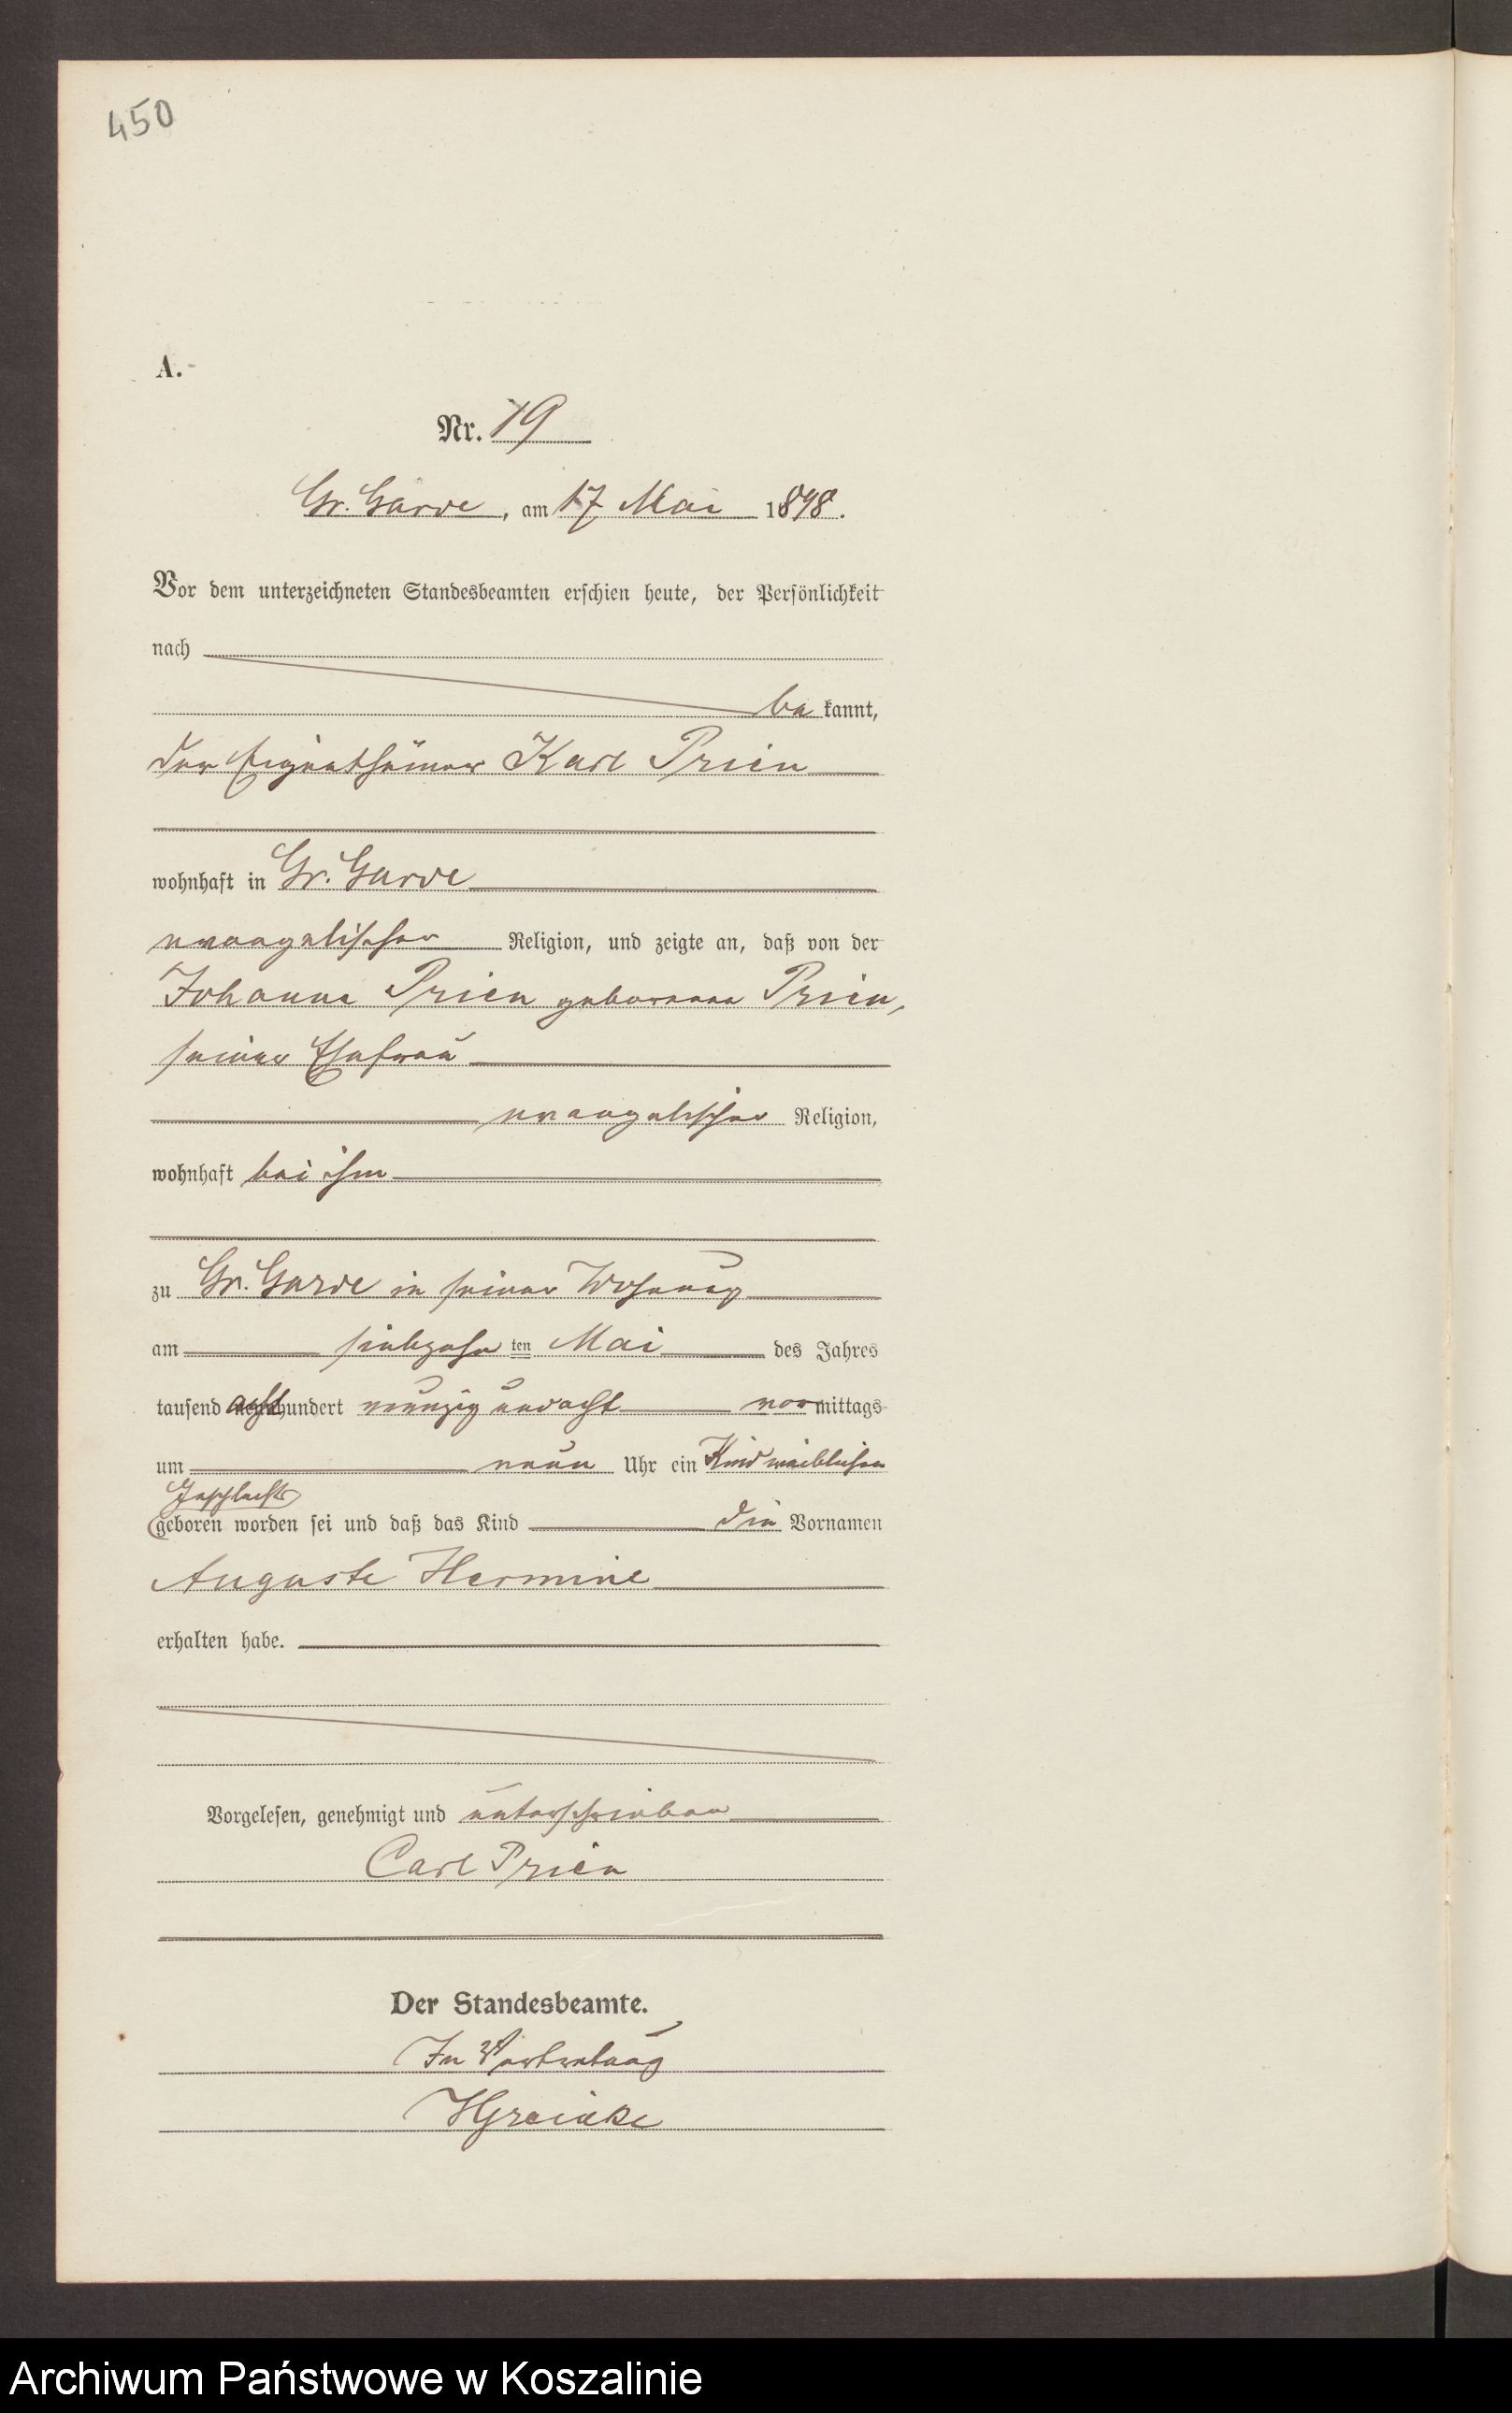 450
A.
Nr. 19
Gr. Garde, am 17 Mai 1898.
Vor dem unterzeichneten Standesbeamten erschien heute, der Persönlichkeit
nach
be kannt,
der Eigenthümer Karl Prien
wohnhaft in Gr. Garde
evangelischer Religion, und zeigte an, daß von der
Johanne Prien geborenen Prien,
seiner Ehefrau
evangelischer Religion,
wohnhaft bei ihm
zu Gr. Garde in seiner Wohnung
am siebzehn ten Mai des Jahres
tausend achthundert neunzig und acht vormittags
um neun Uhr ein Kind weiblichen
Geschlechts
geboren worden sei und daß das Kind die Vornamen
Auguste Hermine
erhalten habe.
Vorgelesen, genehmigt und unterschrieben
Carl Prien
Der Standesbeamte.
In Vertretung
Archiwum Państwowe w Koszalinie